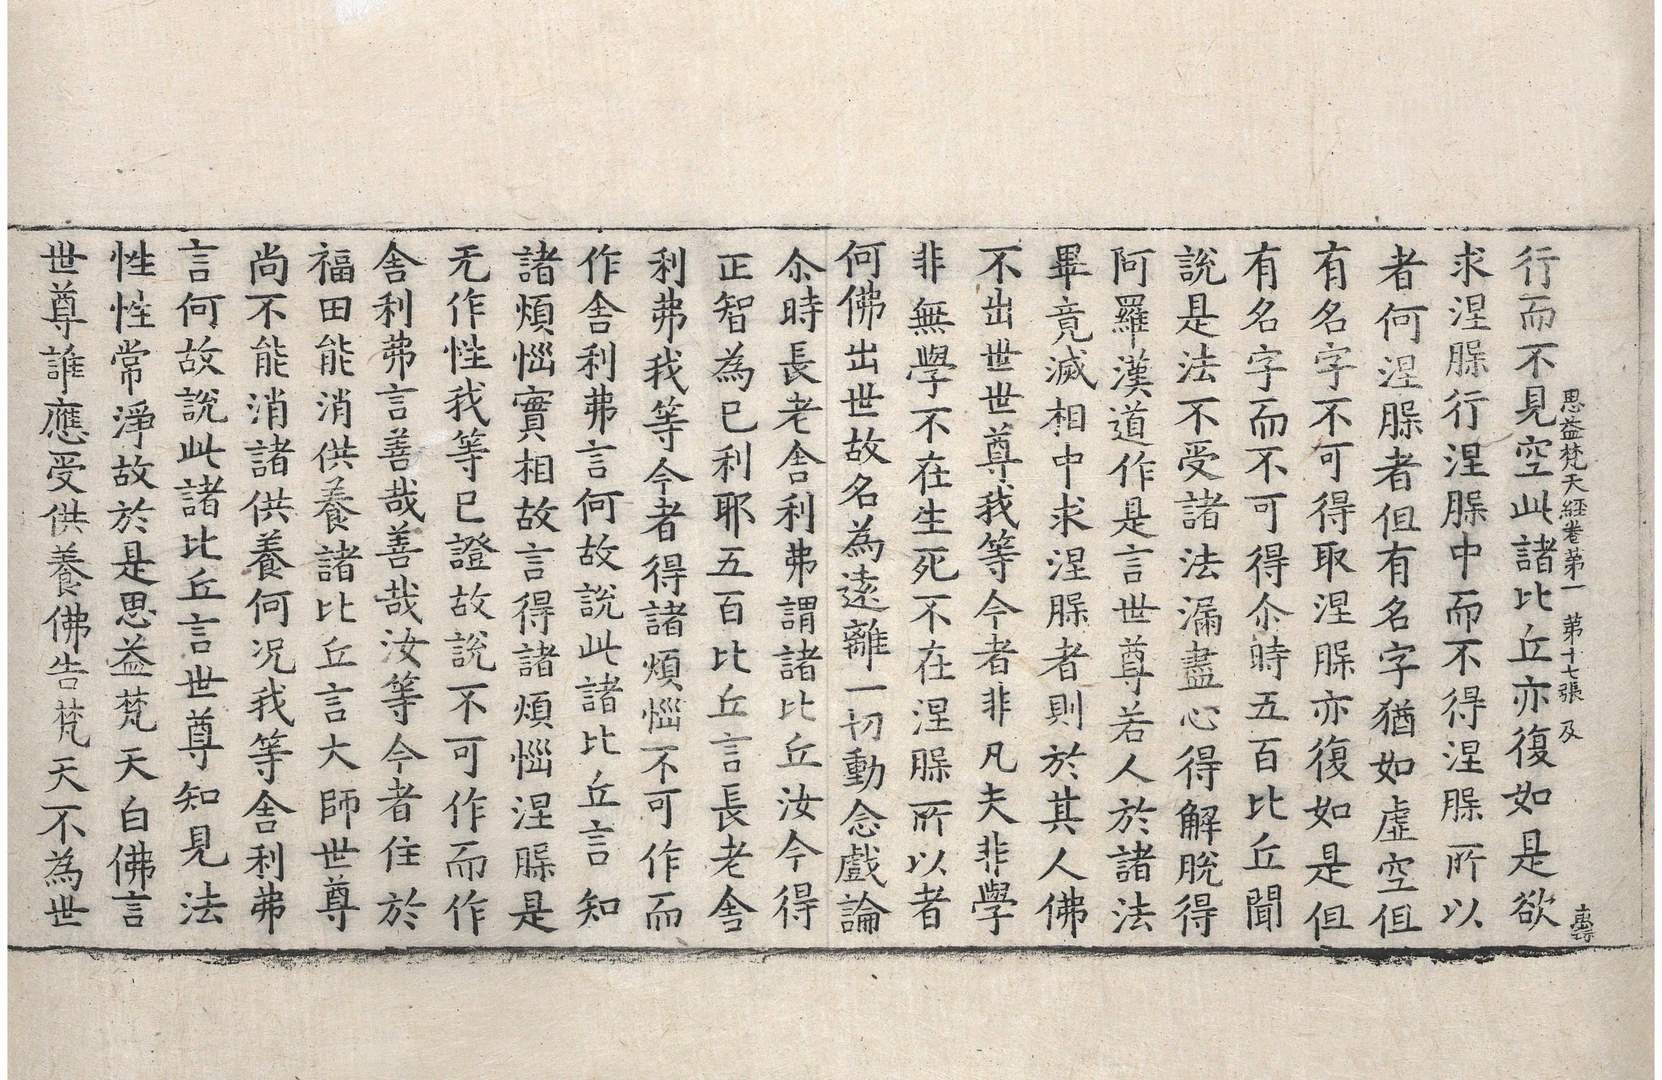 思益梵天経卷第一 第十七張 及
行而不見空此諸比丘亦復如是欲
求涅槃行涅槃中而不得涅槃所以
者何涅槃者但有名字猶如虛空但
有名字不可得取涅槃亦復如是但
有名字而不可得尒時五百比丘聞
說是法不受諸法漏盡心得解脫得
阿羅漢道作是言世尊若人於諸法
畢竟滅相中求涅槃者則於其人佛
不出世世尊我等今者非凡夫非學
非無學不在生死不在涅槃所以者
何佛出世故名為遠離一切動念戲論
尒時長老舍利弗謂諸比丘汝今得
正智為已利耶五百比丘言長老舍
利弗我等今者得諸煩惱不可作而
作舍利弗言何故說此諸比丘言知
諸煩惱實相故言得諸煩惱涅槃是
无作性我等已證故說不可作而作
舍利弗言善哉善哉汝等今者住於
福田能消供養諸比丘言大師世尊
尚不能消諸供養何況我等舍利弗
言何故說此諸比丘言世尊知見法
性性常淨故於是思益梵天白佛言
世尊誰應受供養佛告梵天不為世